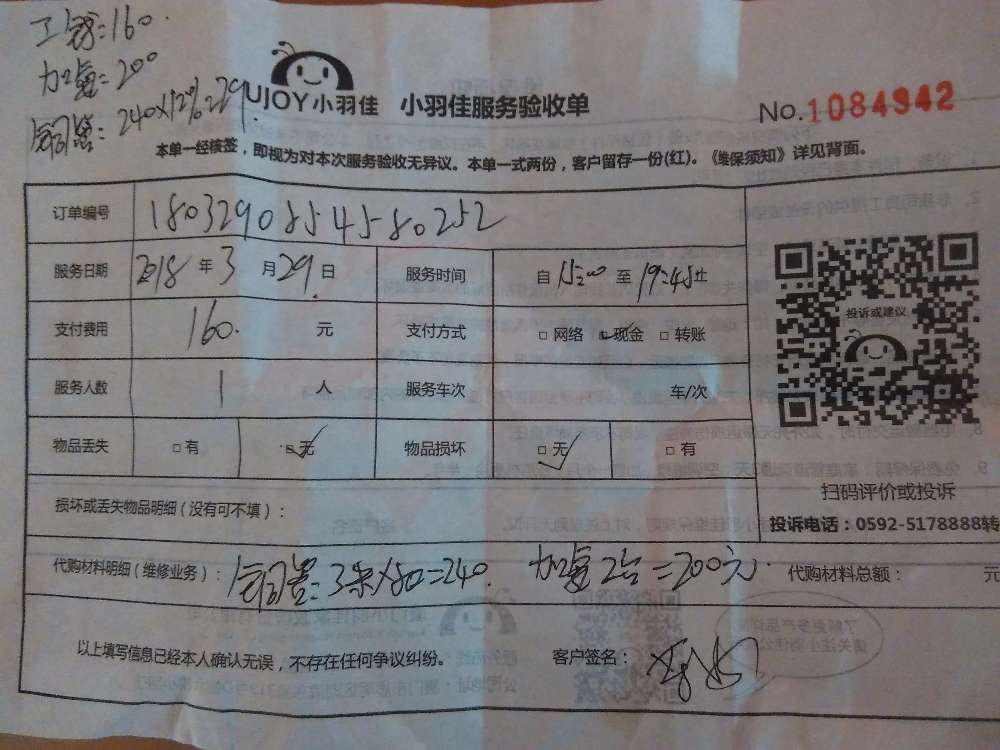 工钱=160
加氟=200
铜管=240×12%=29.
UJOY小羽佳 小羽佳服务验收单
No.1084942
本单一经核签，即视为对本次服务验收无异议。本单一式两份，客户留存一份(红)。《维保须知》详见背面。
订单编号
服务日期 2018 年 3 月 29 日 服务时间 自 15:00 至 19:45 止
支付费用 160. 元 支付方式 □网络 □现金 □转账
投诉或建议
服务人数 1 人 服务车次 车/次
物品丢失 □有 □无 物品损坏 □无 □有
扫码评价或投诉
损坏或丢失物品明细（没有可不填）：
投诉电话：0592-5178888转
代购材料明细（维修业务）： 铜管=3米×80=240. 加氟2台=200元. 代购材料总额： 元
以上填写信息已经本人确认无误，不存在任何争议纠纷。 客户签名：